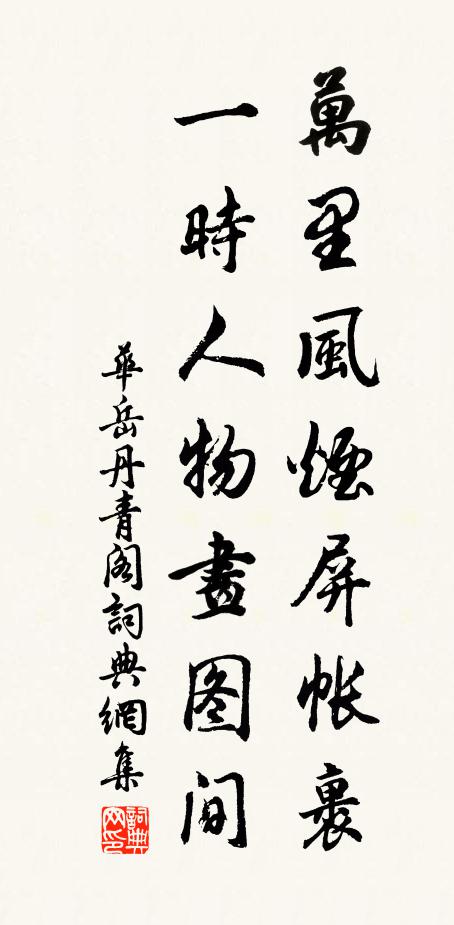 萬里風煙屏帳裏
一時人物畫图间
華岳丹青閣詞典網集
詞典网印